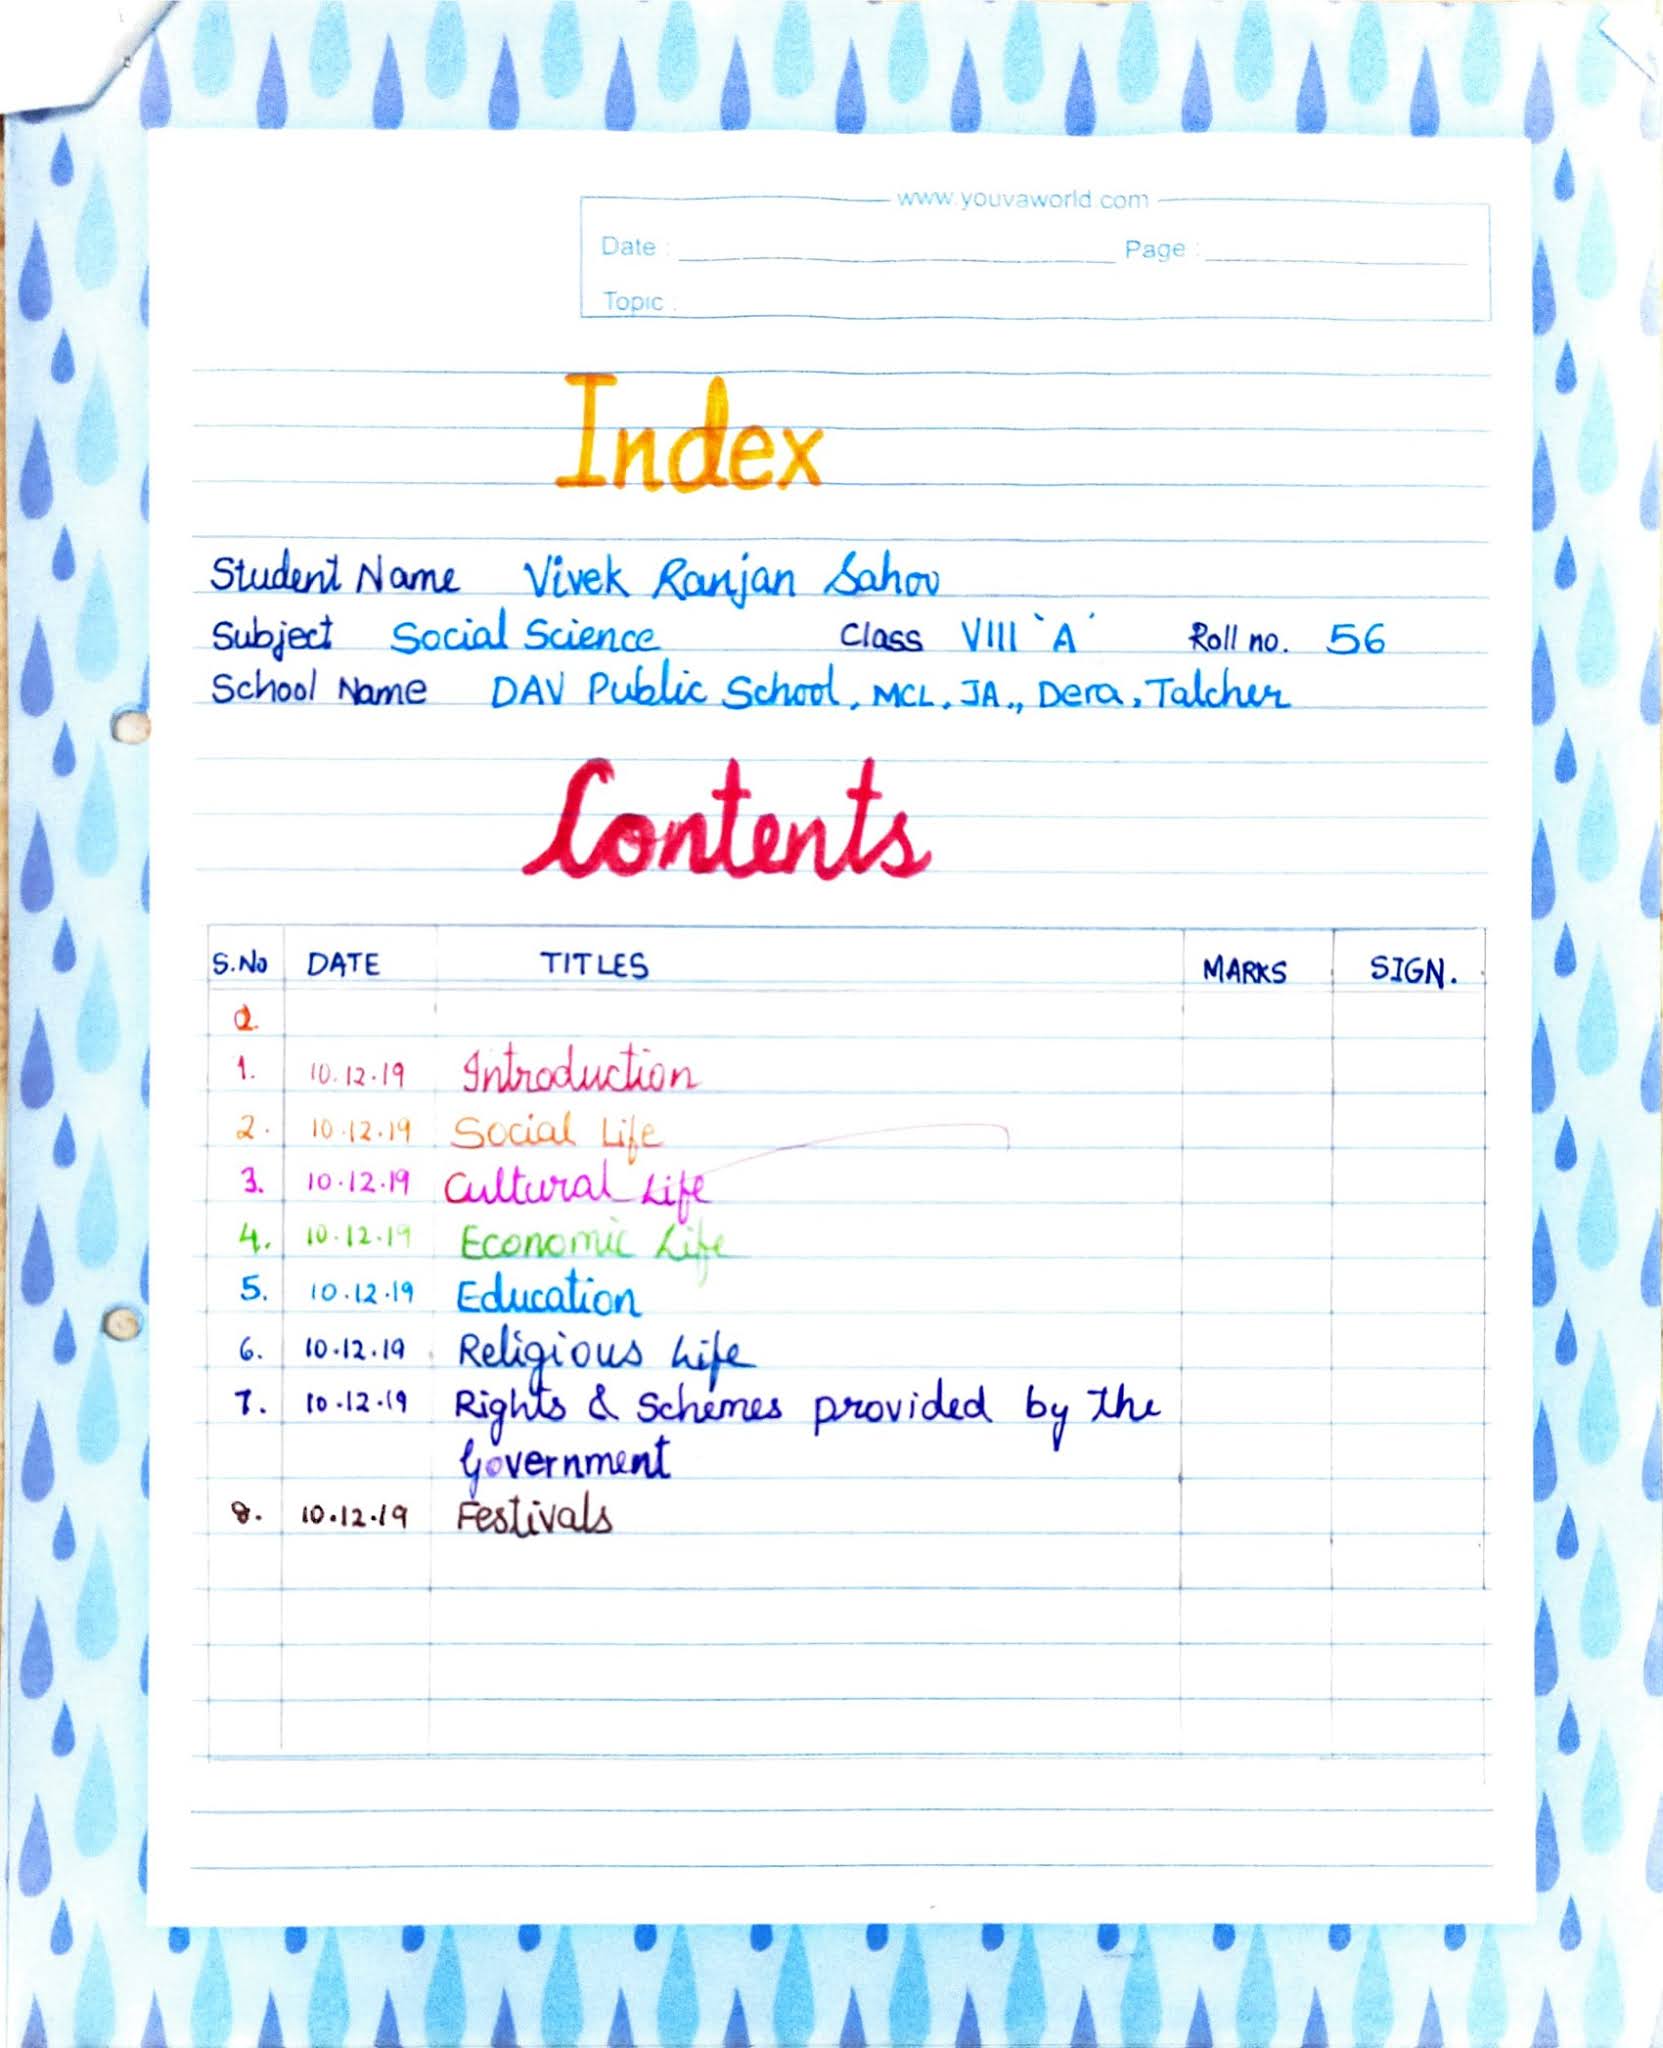 www.youvaworld.com
Date : Page :
Topic :
Index
Student Name Vivek Ranjan Sahoo
Subject Social Science Class VIII 'A' Roll no. 56
School Name DAV Public School, MCL, JA., Dera, Talcher
Contents
S.No DATE TITLES MARKS SIGN.
Q.
1. 10.12.19 Introduction
2. 10.12.19 Social Life
3. 10.12.19 Cultural Life
4. 10.12.19 Economic Life
5. 10.12.19 Education
6. 10.12.19 Religious Life
7. 10.12.19 Rights & Schemes provided by the
Government
8. 10.12.19 Festivals